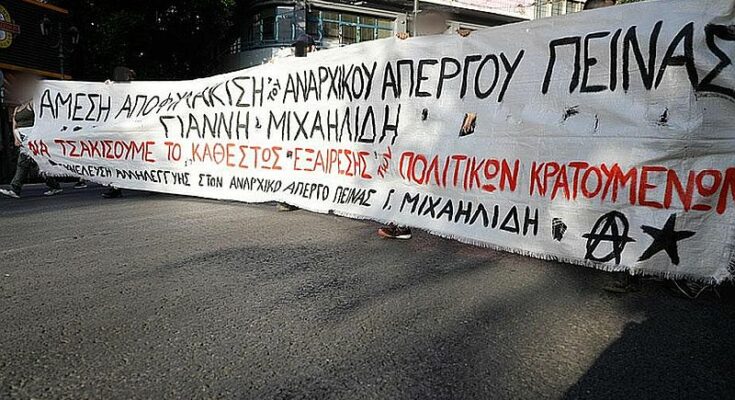 ΑΜΕΣΗ ΑΠΟΦΥΛΑΚΙΣΗ του ΑΝΑΡΧΙΚΟΥ ΑΠΕΡΓΟΥ ΠΕΙΝΑΣ
ΓΙΑΝΝΗ ΜΙΧΑΗΛΙΔΗ
ΝΑ ΤΣΑΚΙΣΟΥΜΕ ΤΟ "ΚΑΘΕΣΤΩΣ ΕΞΑΙΡΕΣΗΣ" των ΠΟΛΙΤΙΚΩΝ ΚΡΑΤΟΥΜΕΝΩΝ
ΣΥΝΕΛΕΥΣΗ ΑΛΛΗΛΕΓΓΥΗΣ ΣΤΟΝ ΑΝΑΡΧΙΚΟ ΑΠΕΡΓΟ ΠΕΙΝΑΣ Γ. ΜΙΧΑΗΛΙΔΗ